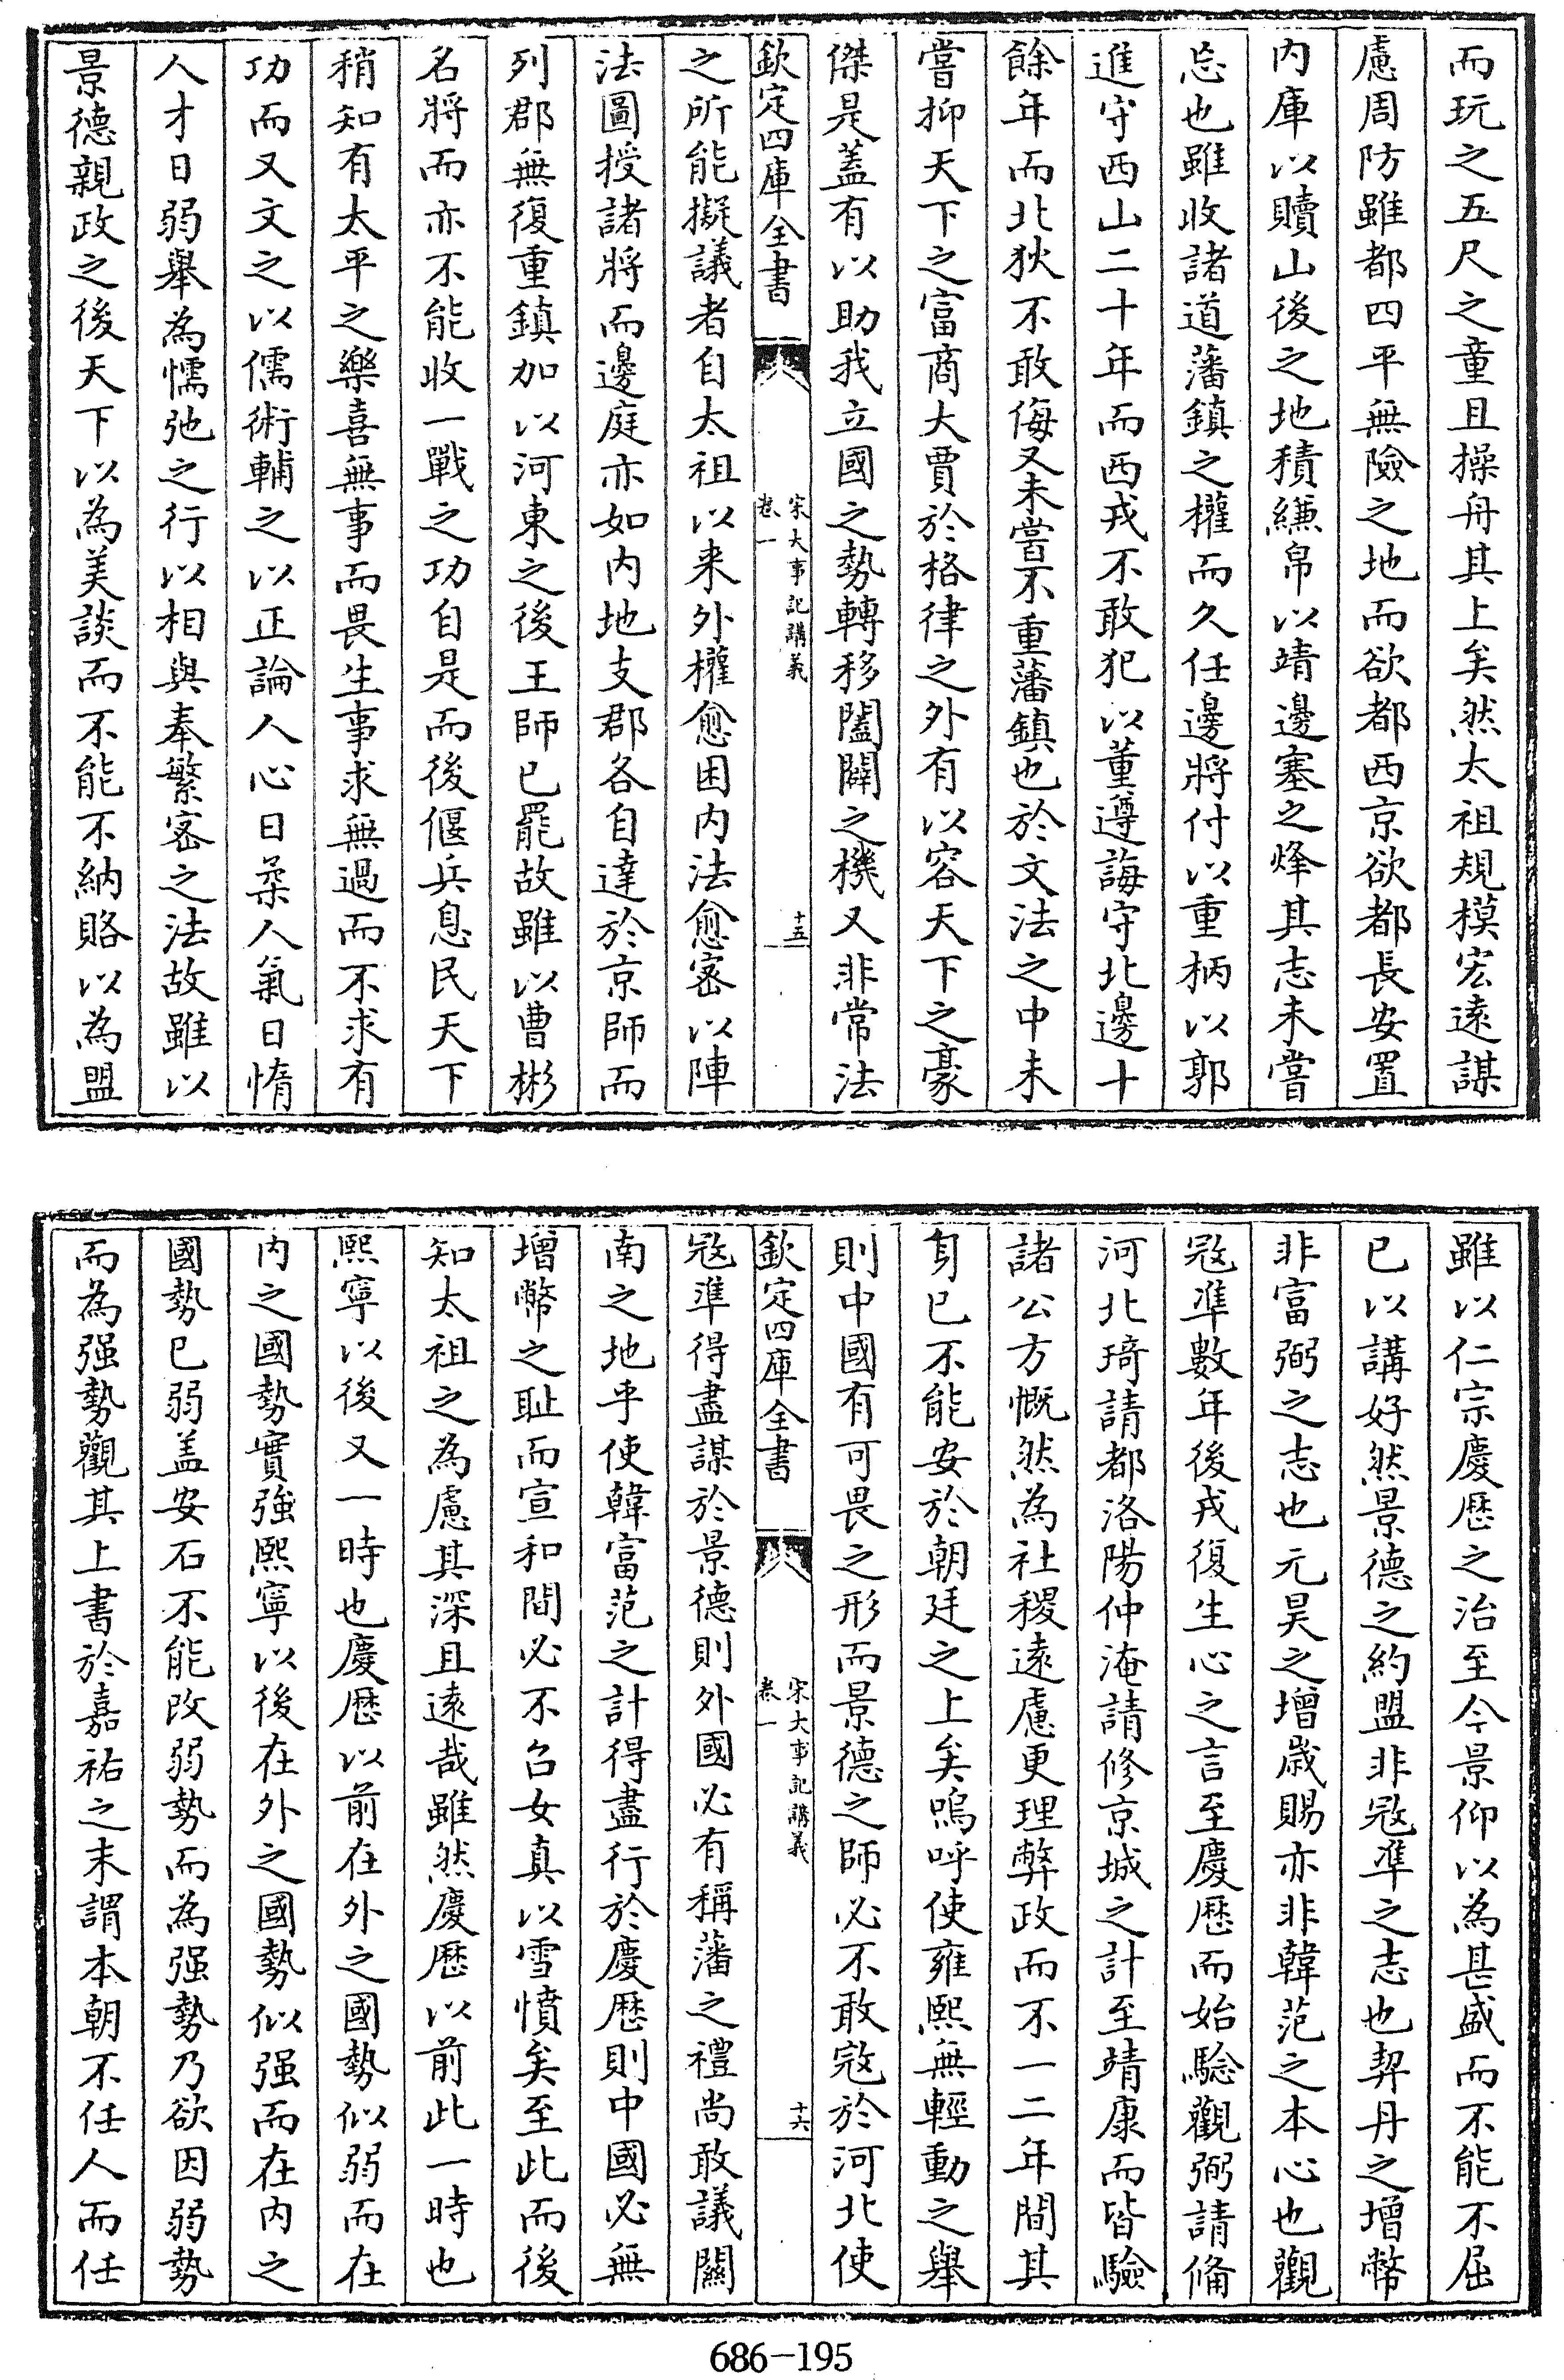 而玩之五尺之童且操舟其上矣然太祖規模宏遠謀
慮周防雖都四平無險之地而欲都西京欲都長安置
内庫以贖山後之地積縑帛以靖邊塞之烽其志未嘗
忘也雖收諸道藩鎮之權而久任邊將付以重柄以郭
進守西山二十年而西戎不敢犯以董遵誨守北邊十
餘年而北狄不敢侮又未嘗不重藩鎮也於文法之中未
嘗抑天下之富商大賈於格律之外有以容天下之豪
傑是蓋有以助我立國之勢轉移闔闢之機又非常法
欽定四庫全書
宋大事記講義
卷一
十五
之所能擬議者自太祖以来外權愈困内法愈密以陣
法圖授諸將而邊庭亦如内地支郡各自達於京師而
列郡無復重鎮加以河東之後王師已罷故雖以曹彬
名將而亦不能收一戰之功自是而後偃兵息民天下
稍知有太平之樂喜無事而畏生事求無過而不求有
功而又文之以儒術輔之以正論人心日柔人氣日惰
人才日弱舉為懦弛之行以相與奉繁密之法故雖以
景德親政之後天下以為美談而不能不納賂以為盟
雖以仁宗慶歴之治至今景仰以為甚盛而不能不屈
已以講好然景德之約盟非冦凖之志也契丹之增幣
非富弼之志也元昊之增歲賜亦非韓范之本心也觀
冦凖數年後戎復生心之言至慶歴而始驗觀弼請脩
河北琦請都洛陽仲淹請修京城之計至靖康而皆驗
諸公方慨然為社稷遠慮更理弊政而不一二年間其
身已不能安於朝廷之上矣嗚呼使雍熙無輕動之舉
則中國有可畏之形而景德之師必不敢冦於河北使
欽定四庫全書
宋大事記講義
卷一
十六
冦準得盡謀於景德則外國必有稱藩之禮尚敢議關
南之地乎使韓富范之計得盡行於慶歴則中國必無
增幣之耻而宣和間必不召女真以雪憤矣至此而後
知太祖之為慮其深且遠哉雖然慶歴以前此一時也
熙寧以後又一時也慶歴以前在外之國勢似弱而在
内之國勢實強熙寧以後在外之國勢似强而在内之
國勢已弱盖安石不能改弱勢而為强勢乃欲因弱勢
而為强勢觀其上書於嘉祐之末謂本朝不任人而任
686-195